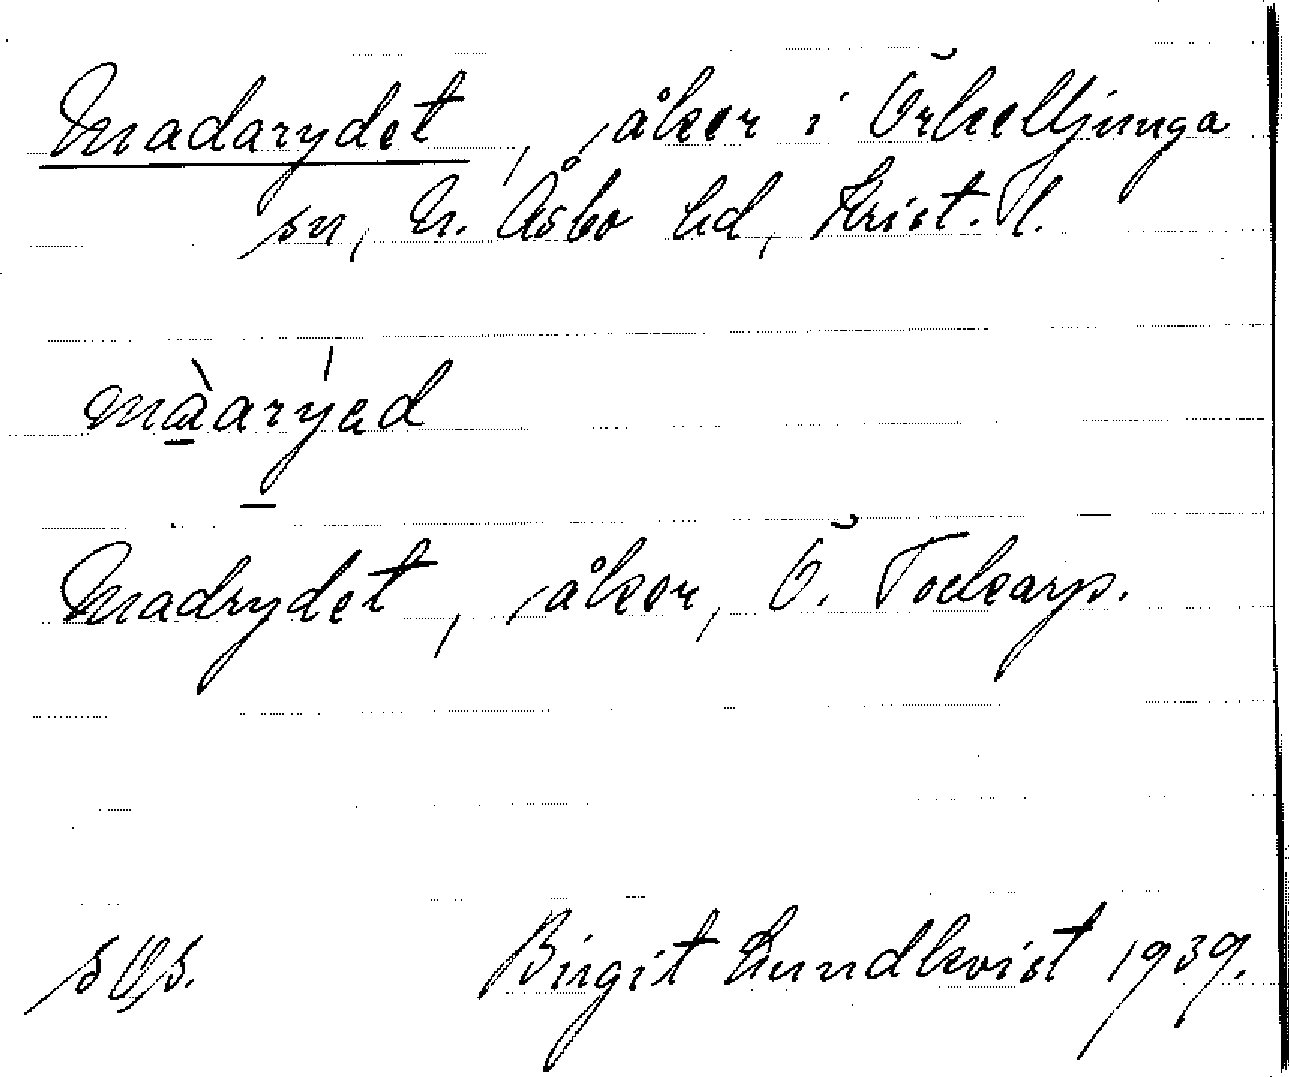 Madarydet, åker i Örkelljunga
sn, N. Åsbo hd, Krist. l.
màarýed
Madrydet, åker, Ö. Tockarp.
Birgit Lundkvist 1939.